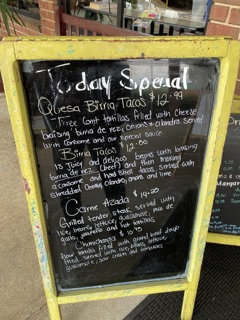 Today Special
Quesa Birria Tacos $12.99
Three Corn tortillas filled with cheese
birria de rez, onions cilandro. served
with consome and our special sauce
Birria Tacos $12.00
is juicy and delicious begins with braising
birria de rez. (beef) and then making
a consome and served with
shredded Onions, cilandro, onions and lime
Carne Azada $19.25
Grilled tender steak served with
rice, beans, lettuce, guacamole, pico de
gallo, and hot tortillas.
Chimichanga $10.95
flour tortilla filled with ground beef
fried served with rice, beans, lettuce,
guacamole, sour cream and tomatoes